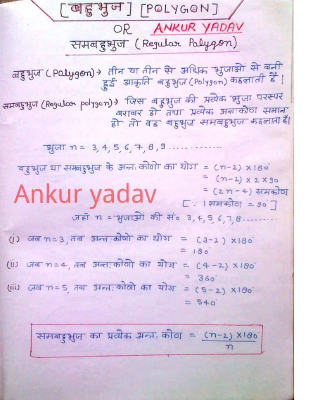 [बहुभुज] [POLYGON]
OR ANKUR YADAV
समबहुभुज (Regular Polygon)
बहुभुज (Polygon) → तीन या तीन से अधिक भुजाओं से बनी
हुई आकृति बहुभुज (Polygon) कहलाती है।
समबहुभुज (Regular polygon) → जिस बहुभुज की प्रत्येक भुजा परस्पर
बराबर हो तथा प्रत्येक अन्तःकोण समान
हो तो वह बहुभुज समबहुभुज कहलाता है।
भुजा n = 3, 4, 5, 6, 7, 8, 9 ..........
बहुभुज या समबहुभुज के अन्तः कोणों का योग = (n-2) × 180°
= (n-2) × 2 × 90
= (2n - 4) समकोण
Ankur yadav
[∵ 1 समकोण = 90°]
जहाँ n = भुजाओं की सं० = 3, 4, 5, 6, 7, 8 ..........
(i) जब n = 3, तब अन्तः कोणों का योग = (3-2) × 180°
= 180°
(ii) जब n = 4, तब अन्तः कोणों का योग = (4-2) × 180°
= 360°
(iii) जब n = 5, तब अन्तः कोणों का योग = (5-2) × 180°
= 540°
समबहुभुज का प्रत्येक अन्तः कोण = (n-2) × 180°
n